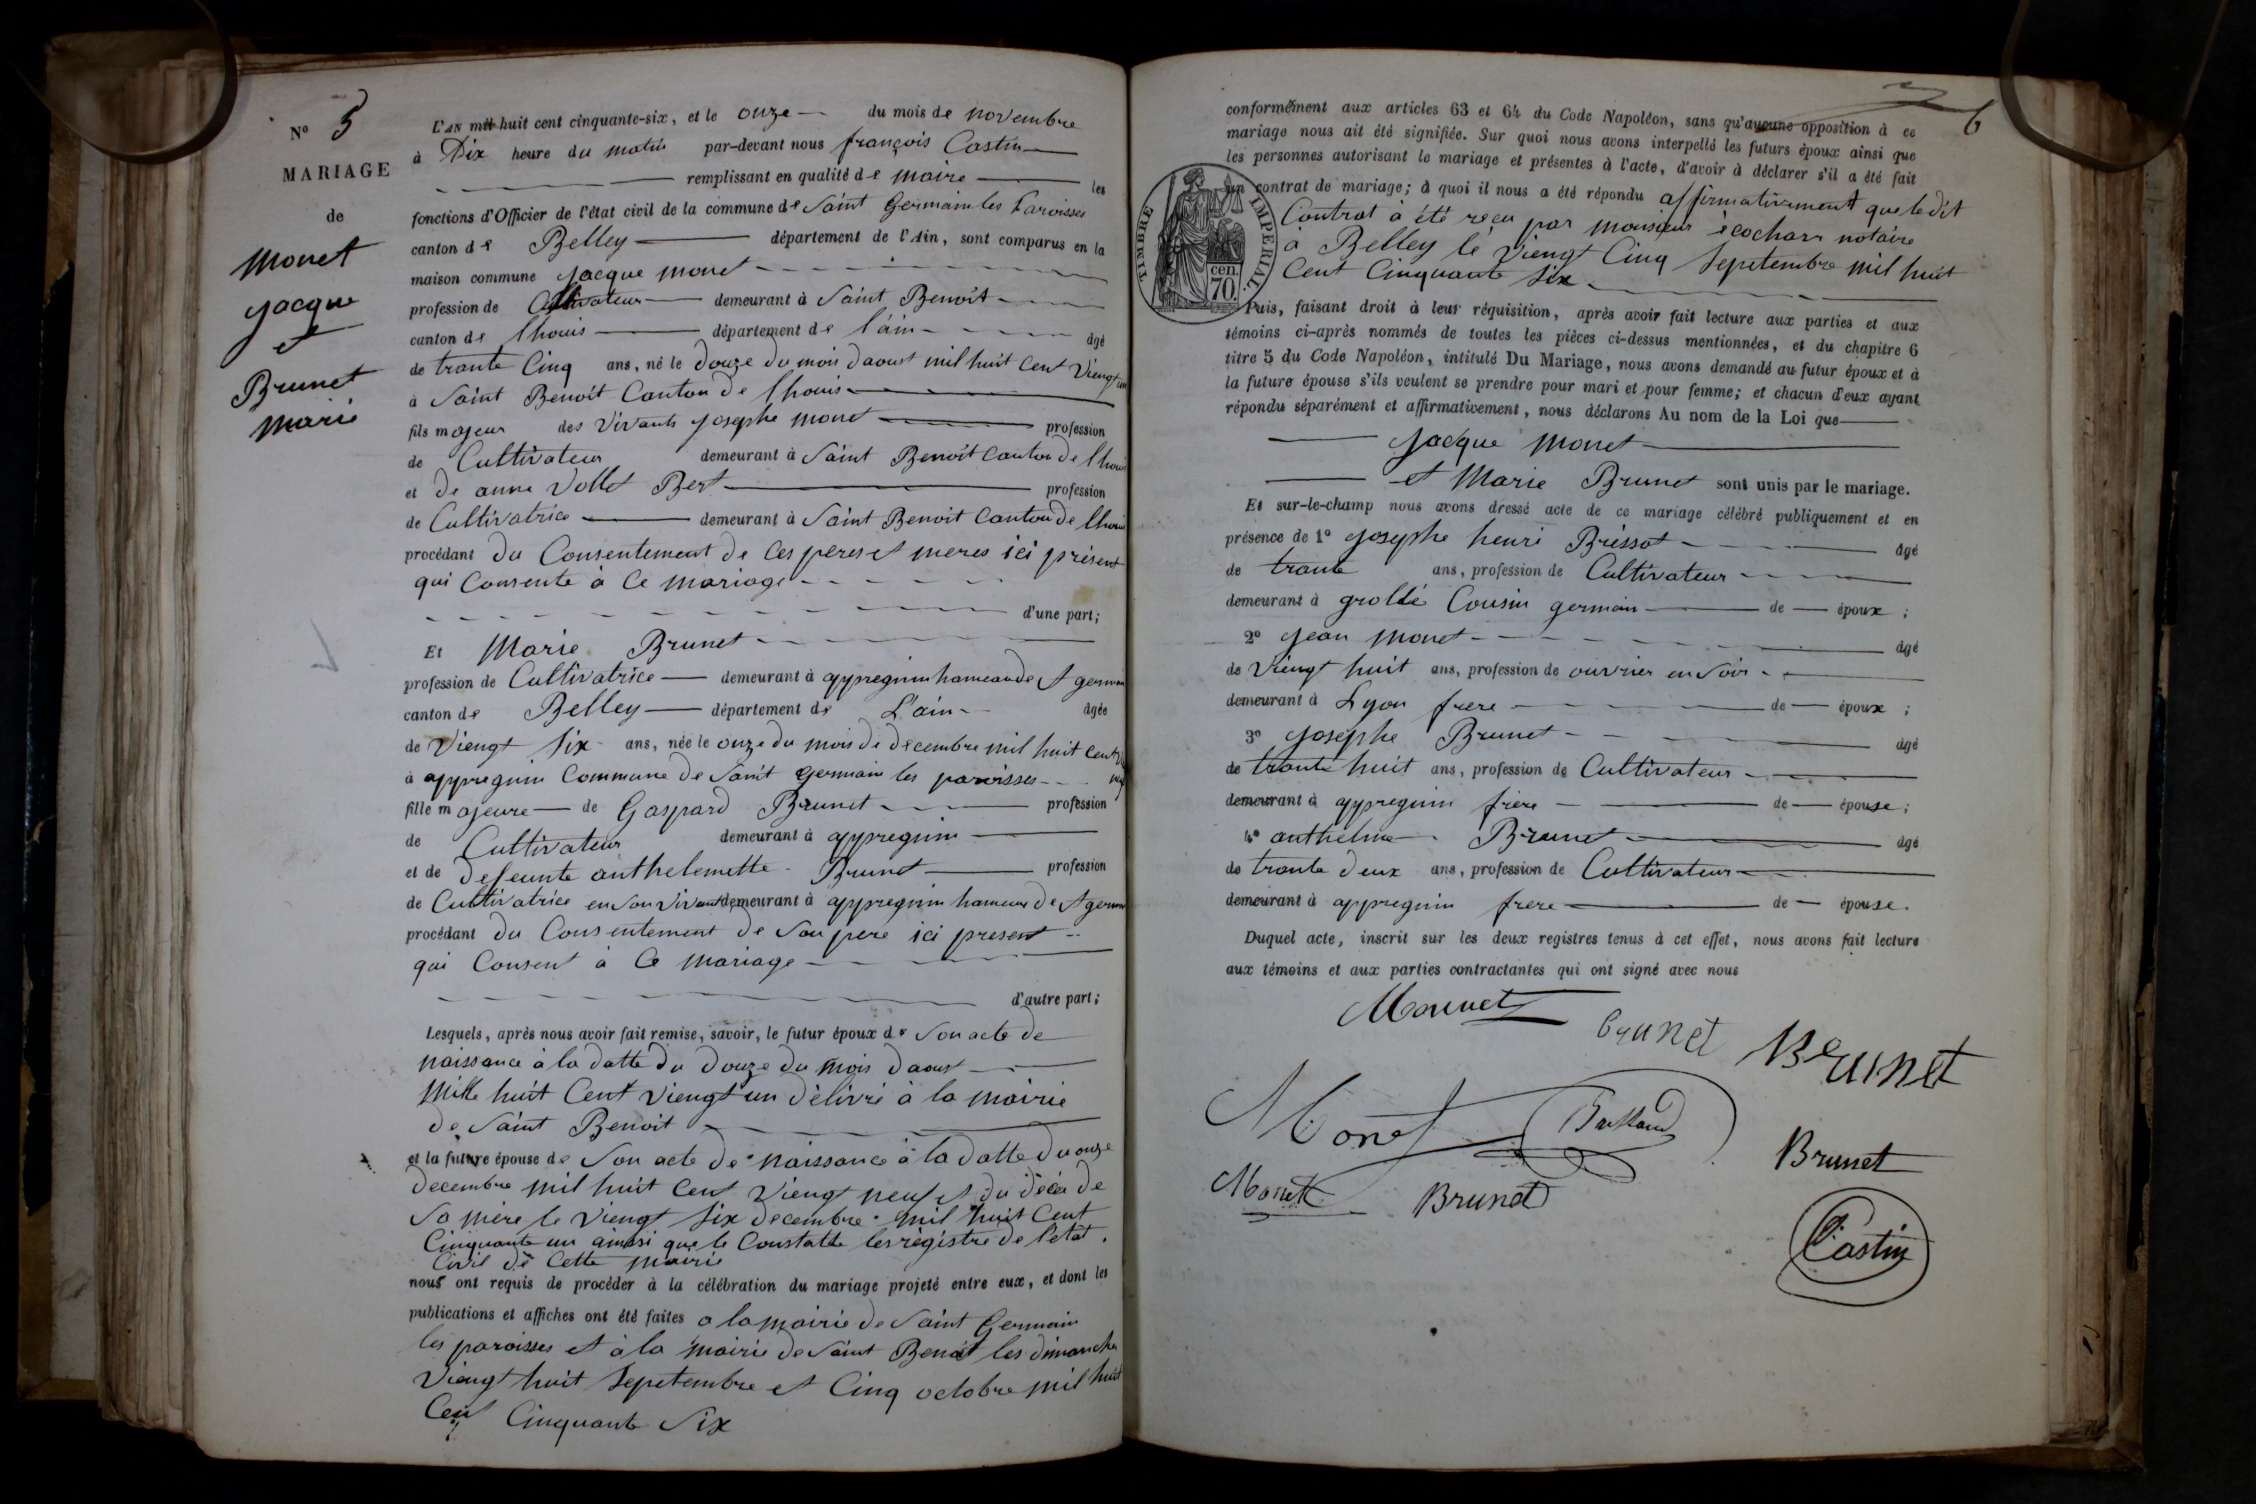 N° 5
MARIAGE
de
Monet
jacque
et
Brunet
marie
L'AN mil huit cent cinquante-six, et le onze du mois de novembre
à Dix heure du matin par-devant nous françois Castin
remplissant en qualité de maire les
fonctions d'Officier de l'état civil de la commune de Saint Germain les Paroisses
canton de Belley département de l'Ain, sont comparus en la
maison commune jacque monet
profession de Cultivateur demeurant à Saint Benoit
canton de lhouis département de l'ain âgé
de trante Cinq ans, né le douze du mois daoust mil huit cent Viengt un
à Saint Benoit Canton de lhouis
fils majeur des Vivants josephe monet profession
de Cultivateur demeurant à Saint Benoit Canton de lhouis
et de anne Vollet Bert profession
de Cultivatrice demeurant à Saint Benoit Canton de lhouis
procédant du Consentement de Ces peres et meres ici présent
qui Consente à Ce mariage
d'une part;
Et Marie Brunet
profession de Cultivatrice demeurant à appregnin hameau de St germain
canton de Belley département de L'ain âgée
de Viengt Six ans, née le onze du mois de decembre mil huit cent
à appregnin Commune de Saint germain les paroisses
fille majeure de Gaspard Brunet profession
de Cultivateur demeurant à appregnin
et de defeunte anthelemette Brunet profession
de Cultivatrice en son Vivant demeurant à appregnin hameau de St germain
procédant du Consentement de Son pere ici present
qui Consent à Ce mariage
d'autre part;
Lesquels, après nous avoir fait remise, savoir, le futur époux de Son acte de
naissance à la datte du douze du mois daoust
mille huit Cent Viengt un délivré à la mairie
de Saint Benoit
et la future épouse de Son acte de naissance à la datte du onze
decembre mil huit cent Viengt neuf et du décés de
Sa mère le Viengt Six decembre mil huit Cent
Cinquante un ainssi que le Constatte les régistre de l'état
Civil de Cette mairie
nous ont requis de procéder à la célébration du mariage projeté entre eux, et dont les
publications et affiches ont été faites a la mairie de Saint Germain
les paroisses et à la mairie de Saint Benoit les dimanche
Viengt huit Sepetembre et Cinq octobre mil huit
Cent Cinquante Six
6
conformément aux articles 63 et 64 du Code Napoléon, sans qu'aucune opposition à ce
mariage nous ait été signifiée. Sur quoi nous avons interpellé les futurs époux ainsi que
les personnes autorisant le mariage et présentes à l'acte, d'avoir à déclarer s'il a été fait
un contrat de mariage; à quoi il nous a été répondu affirmativement que le dit
Contrat à été reçu par monsieur écochard notaire
à Belley le Viengt Cinq Sepetembre mil huit
Cent Cinquante Six
TIMBRE IMPERIAL
cen.
70.
Puis, faisant droit à leur réquisition, après avoir fait lecture aux parties et aux
témoins ci-après nommés de toutes les pièces ci-dessus mentionnées, et du chapitre 6
titre 5 du Code Napoléon, intitulé Du Mariage, nous avons demandé au futur époux et à
la future épouse s'ils veulent se prendre pour mari et pour femme; et chacun d'eux ayant
répondu séparément et affirmativement, nous déclarons Au nom de la Loi que
Jacque Monet
et Marie Brunet sont unis par le mariage.
Et sur-le-champ nous avons dressé acte de ce mariage célébré publiquement et en
présence de 1° josephe henri Brissot âgé
de trante ans, profession de Cultivateur
demeurant à grolée Cousin germain de époux;
2° jean monet âgé
de Viengt huit ans, profession de ouvrier en Soir
demeurant à Lyon frere de époux;
3° josephe Brunet âgé
de trante huit ans, profession de Cultivateur
demeurant à appregnin frère de épouse;
4° anthelme Brunet âgé
de trante deux ans, profession de Cultivateur
demeurant à appregnin frere de épouse.
Duquel acte, inscrit sur les deux registres tenus à cet effet, nous avons fait lecture
aux témoins et aux parties contractantes qui ont signé avec nous
Monnet
brunet
Brunet
Monet
Brunet
Monet
Brunet
Castin